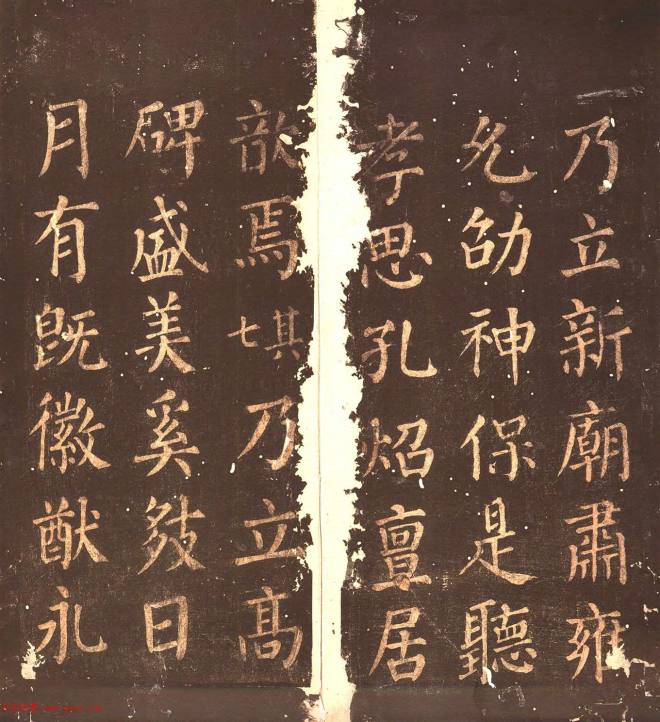 乃立新廟肅雍
允劭神保是聽
孝思孔炤亶居
歆焉其七乃立高
碑盛美奚日
月有既徽猷永